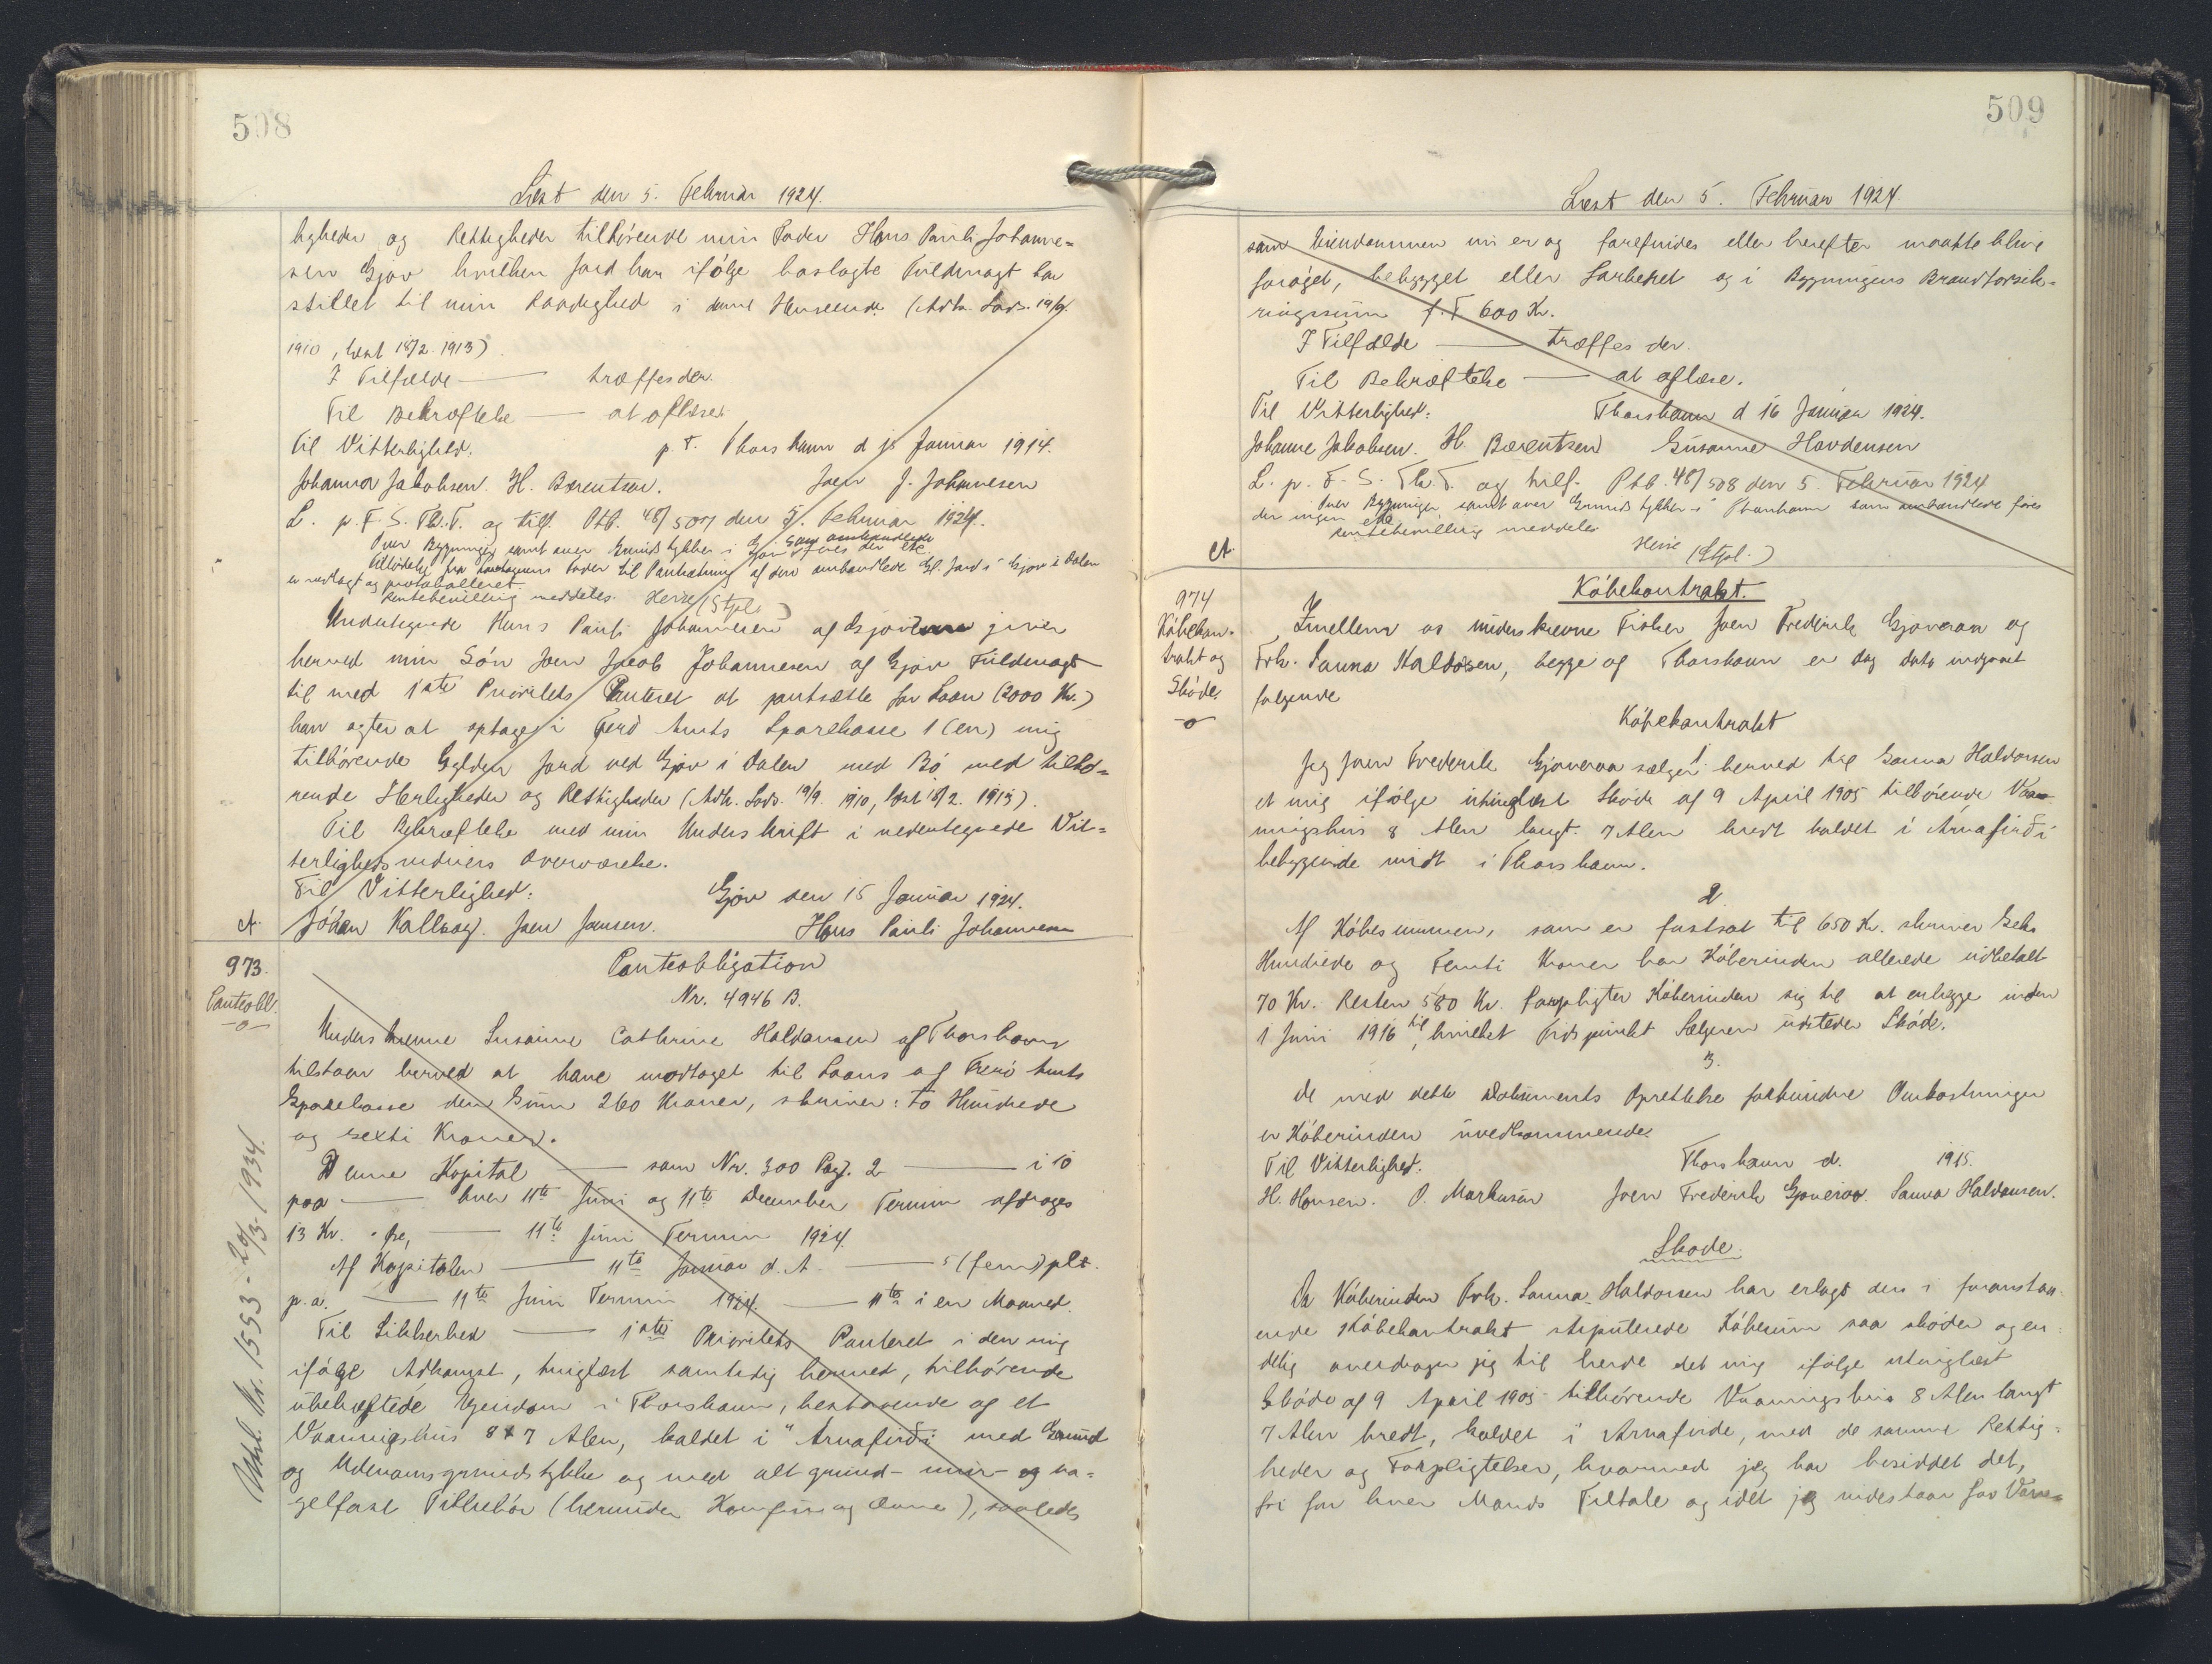 508
Læst den 5. Februar 1924.
ligheder og Rettigheder tilhørende min Fader Hans Pauli Johanne=
sen Gjov hvilken Jord han ifølge Fuldmagt har
stillet til min Raadighed i denne Henseende (Adk. Lods. 19/9.
1910, læst 18/2 1913).
I Tilfælde — træffes der.
Til Bekræftelse — at aflæse.
Til Vitterlighed.
p. t. Thorshavn d 15 Januar 1914.
Johanna Jakobsen. H. Bærentsen.
Joen J. Johannesen
L. p. F. S. Th. T. og tilf. Ptb. 48/507 den 5. Februar 1924.
Over Bygninger samt over Grundstykker i Gjov som ombandlede føres der ikke
fra Fader til Pantsætning af den ombandlede Gl. Jord i Gjov i Dalen
er vedlagt og protokolleret.
Rentebevilling meddeles. Heise (Stpl.)
Undertegnede Hans Pauli Johannesen af Gjov giver
herved min Søn Joen Jacob Johannesen af Gjov Fuldmagt
til med 1ste Prioritets Panteret at pantsætte for Laan (2000 Kr.)
han agter at optage i Færø Amts Sparekasse 1 (en) mig
tilhørende Gylden Jord ved Gjov i Dalen med Bø med tilhø=
rende Herligheder og Rettigheder (Adk. Lods. 19/9. 1910, læst 18/2. 1913).
Til Bekræftelse med min Underskrift i nedentegnede Vit=
terlighedsvidners Overværelse.
Til Vitterlighed:
Gjov den 15 Januar 1924.
A.
Jóhan Kallsoy. Joen Joensen.
Hans Pauli Johannesen
973.
Panteobl.
Panteobligation
Nr. 4946 B.
Underskrevne Susanne Cathrine Haldorsen af Thorshavn
tilstaar herved at have modtaget til Laans af Færø Amts
Sparekasse den Sum 260 Kroner, skriver: to Hundrede
og sexti Kroner.
Denne Kapital — som Nr. 300 Pag. 2 — i 10
paa — hver 11te Juni og 11te December Termin afdrages
13 Kr. - Øre, — 11te Juni Termin 1924.
Af Kapitalen — 11te Januar d. A. — 5 (fem) pCt.
p. a. — 11te Juni Termin 1924. — 11te i en Maaned.
Til Sikkerhed — 1ste Prioritets Panteret i den mig
ifølge Adkomst, tinglæst samtidig hermed, tilhørende
ubehæftede Ejendom i Thorshavn, bestaaende af et
Vaaningshus 8 x 7 Alen, kaldet i "Arnafirði med Grund
og Udenomsgrundstykke og med alt grund- mur- og na=
gelfast Tilbehør (herunder Komfur og Ovne), saaledes
Aksl. Nr. 1553 - 20/3 1934.
509
Læst den 5. Februar 1924.
som Eiendommen nu er og forefindes eller herefter maatte blive
forøget, bebygget eller forbedret og i Bygningens Brandforsik=
ringssum p. T. 600 Kr.
I Tilfælde — træffes der.
Til Bekræftelse — at aflæse.
Til Vitterlighed:
Thorshavn d 16 Januar 1924.
Johanne Jakobsen. H. Bærentsen
Susanne Havdensen
L. p. F. S. Th. T. og tilf. Ptb. 48/508 den 5. Februar 1924
Over Bygninger samt over Grundstykker i Thorshavn som ombandlede føres
der ingen
Rentebevilling meddeles
Heise (Stpl.)
A.
974
Købekon-
trakt og
Skøde.
Købekontrakt.
Imellem os underskrevne Fisker Joen Frederik Gjoveraa og
Frk. Sanna Haldorsen, begge af Thorshavn er Dag Dato indgaaet
følgende
Købekontrakt
1.
Jeg Joen Frederik Gjoveraa sælger herved til Sanna Haldorsen
et mig ifølge utinglæst Skøde af 9 April 1905 tilhørende Vaa-
ningshus 8 Alen langt. 7 Alen bredt kaldet i Arnafirði
beliggende midt i Thorshavn.
2
Af Købesummen, som er fastsat til 650 Kr. skriver Seks
Hundrede og Femti Kroner har Køberinden allerede udbetalt
70 Kr. Resten 580 Kr. forpligter Køberinden sig til at erlægge inden
1 Juni 1916 til hvilket Tidspunkt Sælgeren udsteder Skøde.
3.
De med dette Dokuments Oprettelse forbundne Omkostninger
er Køberinden uvedkommende.
Til Vitterlighed.
Thorshavn d. 1915.
H. Hansen. O. Markusen
Joen Frederik Gjoveraa. Sanna Haldorsen.
Skøde.
Da Køberinden Frk. Sanna Haldorsen har erlagt den i foranstaa-
ende Købekontrakt stipulerede Købesum saa skøder og en-
delig overdrager jeg til hende det mig ifølge utinglæst
Skøde af 9 April 1905 tilhørende Vaaningshus 8 Alen langt
7 Alen bredt, kaldet i Arnafirde, med de samme Rettig-
heder og Forpligtelser, hvormed jeg har besiddet det,
fri for hver Mands Tiltale og idet jeg indestaar for Vane=